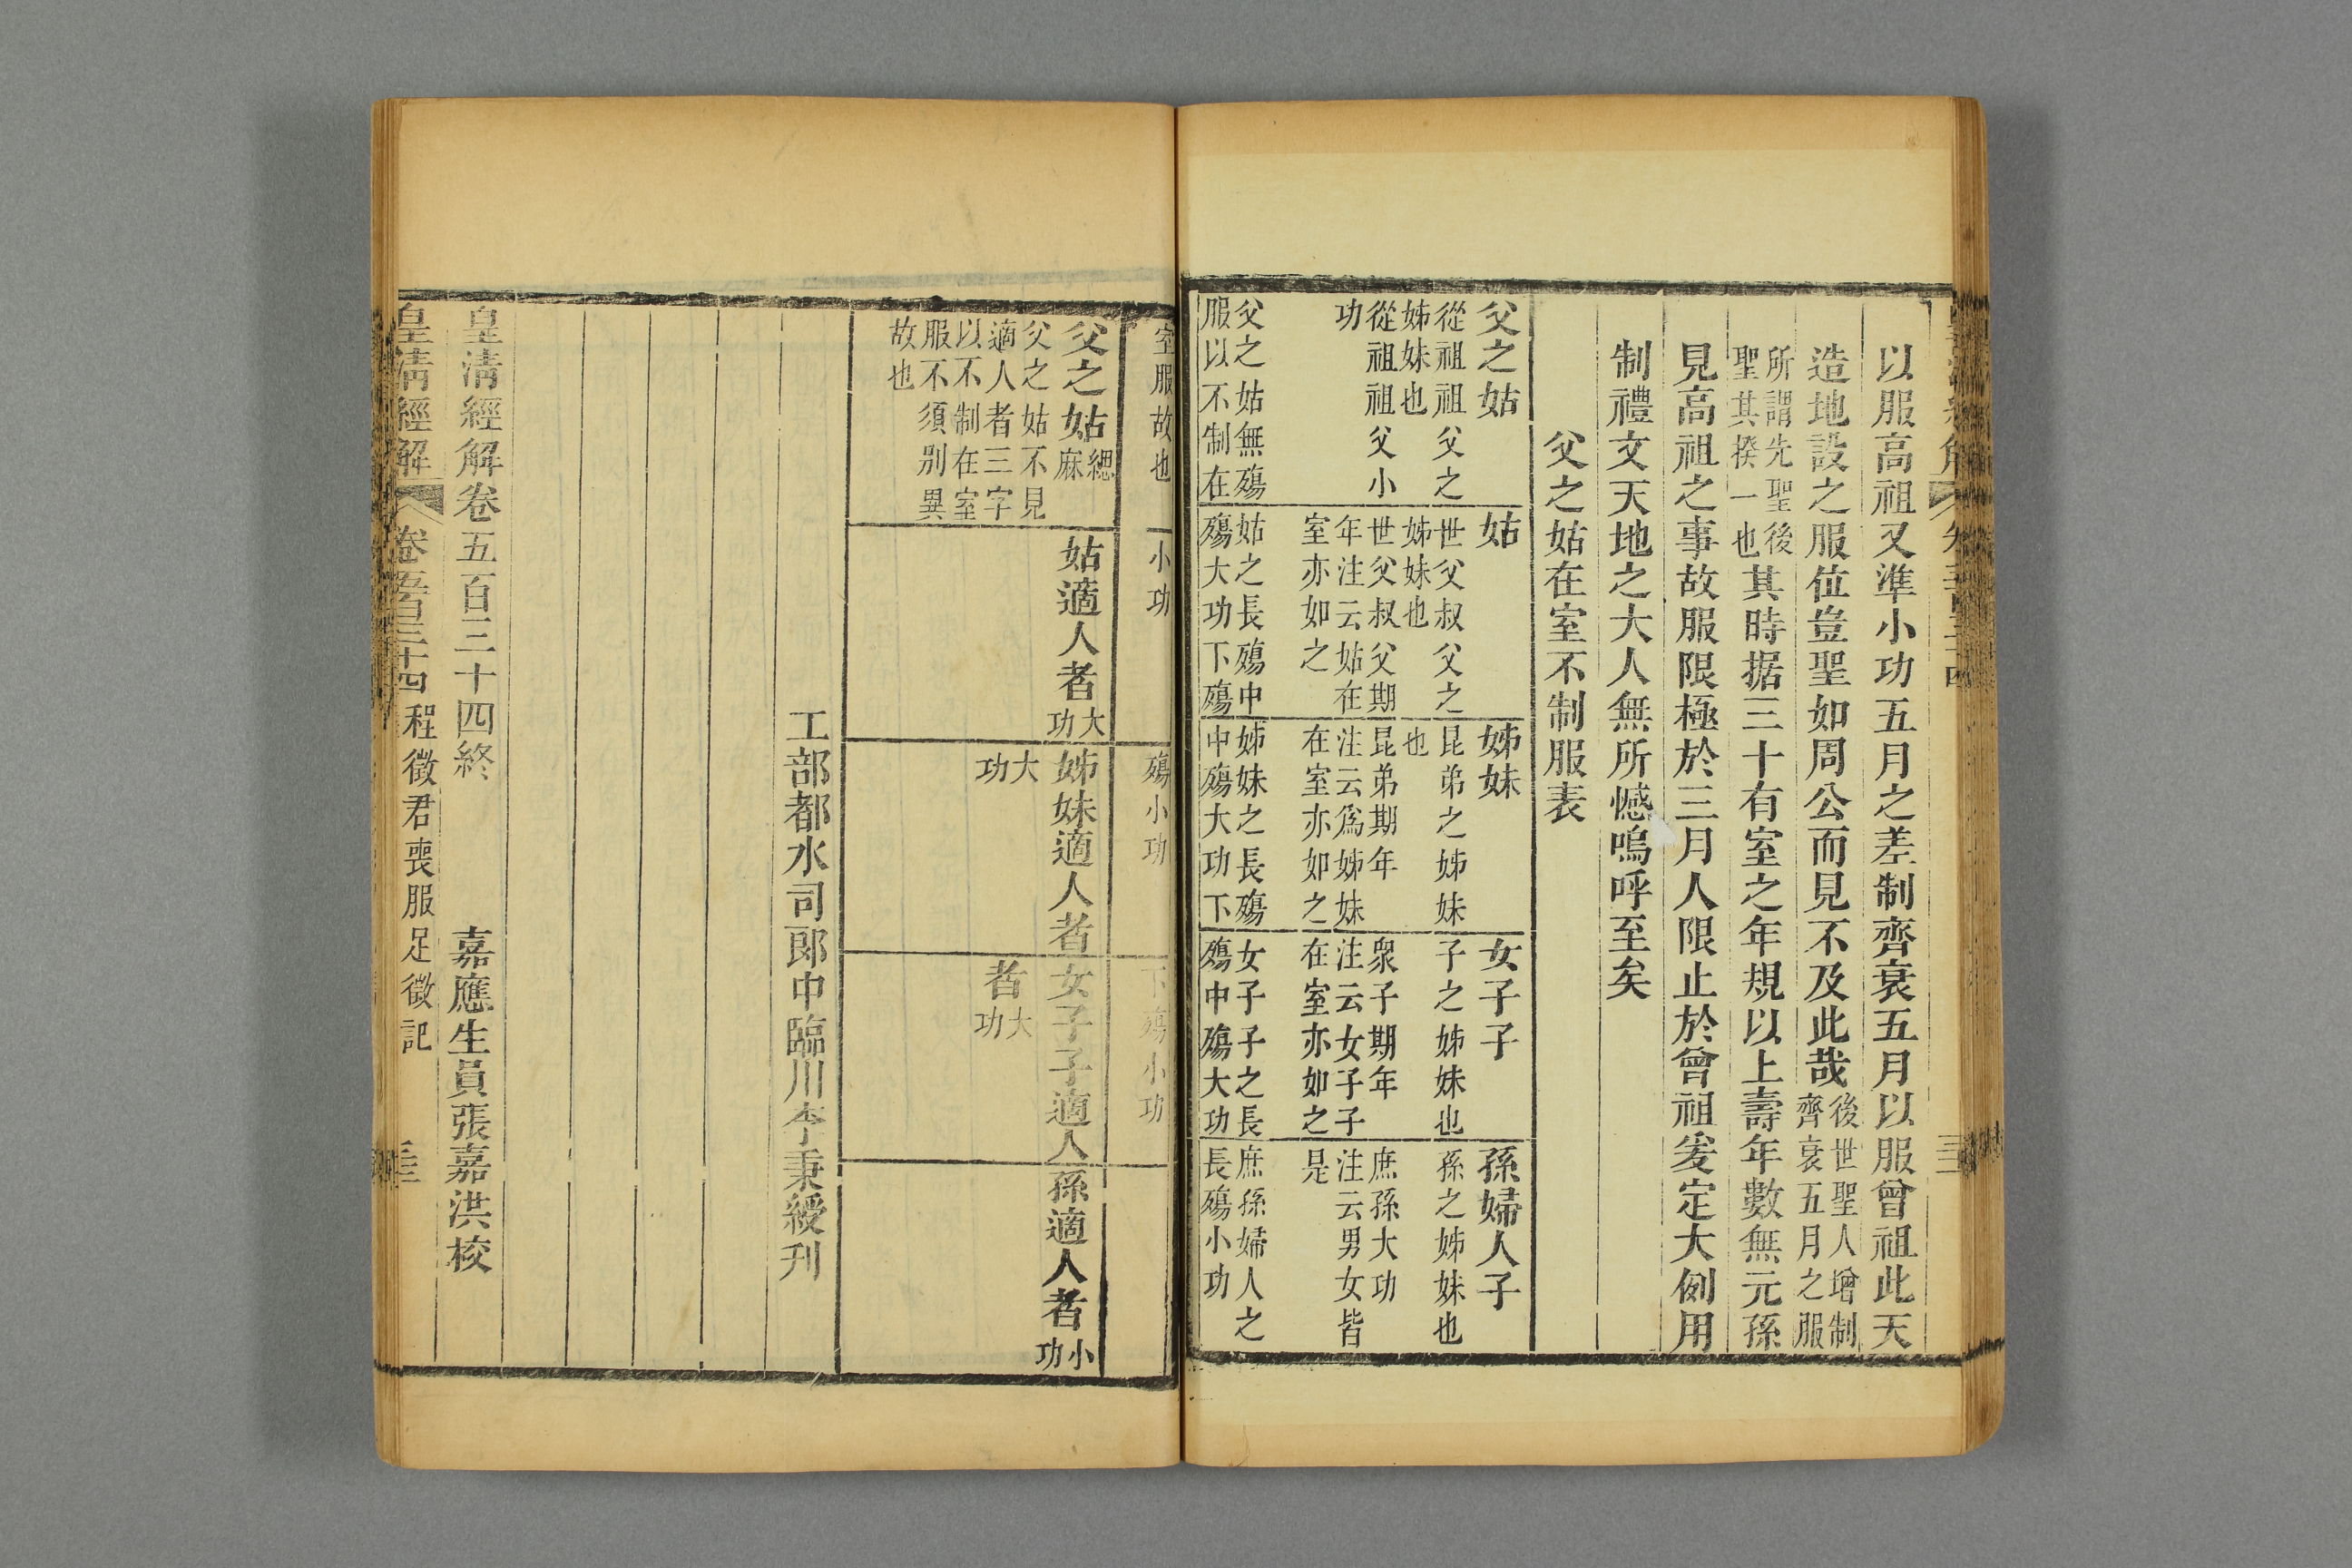 以服高祖又準小功五月之差制齊衰五月以服曾祖此天
造地設之服位豈聖如周公而見不及此哉後世聖人增制
齊衰五月之服
所謂先聖後
聖其揆一也其時据三十有室之年規以上壽年數無元孫
見高祖之事故服限極於三月人限止於曾祖爰定大例用
制禮文天地之大人無所憾嗚呼至矣
父之姑在室不制服表
父之姑
從祖祖父之
姊妹也
從祖祖父小
功
父之姑無殤
服以不制在
姑
世父叔父之
姊妹也
世父叔父期
年注云姑在
室亦如之
姑之長殤中
殤大功下殤
姊妹
昆弟之姊妹
也
昆弟期年
注云爲姊妹
在室亦如之
姊妹之長殤
中殤大功下
女子子
子之姊妹也
衆子期年
注云女子子
在室亦如之
女子子之長
殤中殤大功
孫婦人子
孫之姊妹也
庶孫大功
注云男女皆
是
庶孫婦人之
長殤小功
室服故也
小功
殤小功
下殤小功
父之姑緦
麻
父之姑不見
適人者三字
以不制在室
服不須別異
故也
姑適人者大
功
姊妹適人者
大
功
女子子適人
者大
功
孫適人者小
功
工部都水司郎中臨川李秉綬刊
皇清經解卷五百三十四終
嘉應生員張嘉洪校
皇清經解
卷五百三十四 程徵君喪服足徵記